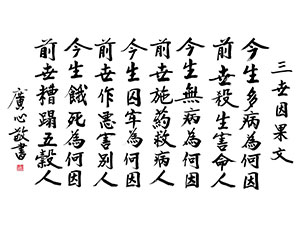 三世因果文
今生多病為何因
前世殺生害命人
今生無病為何因
前世施药救病人
今生囚牢為何因
前世作惡害别人
今生餓死為何因
前世糟蹋五穀人
廣心敬書